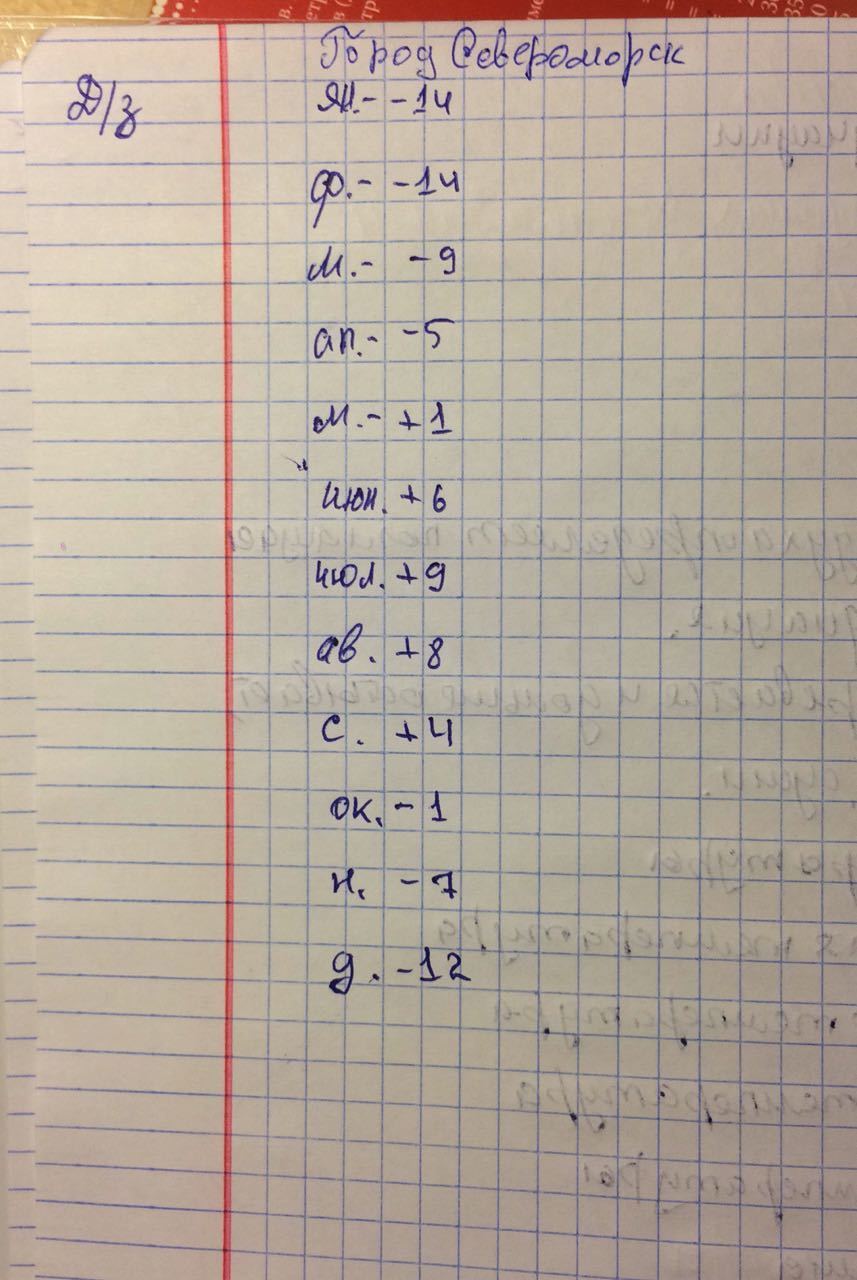 Город Североморск
Д/з
ян.- -14
ф.- -14
м.- -9
ап.- -5
м.- +1
июн. +6
июл. +9
ав. +8
с. +4
ок. -1
н. -7
д. -12